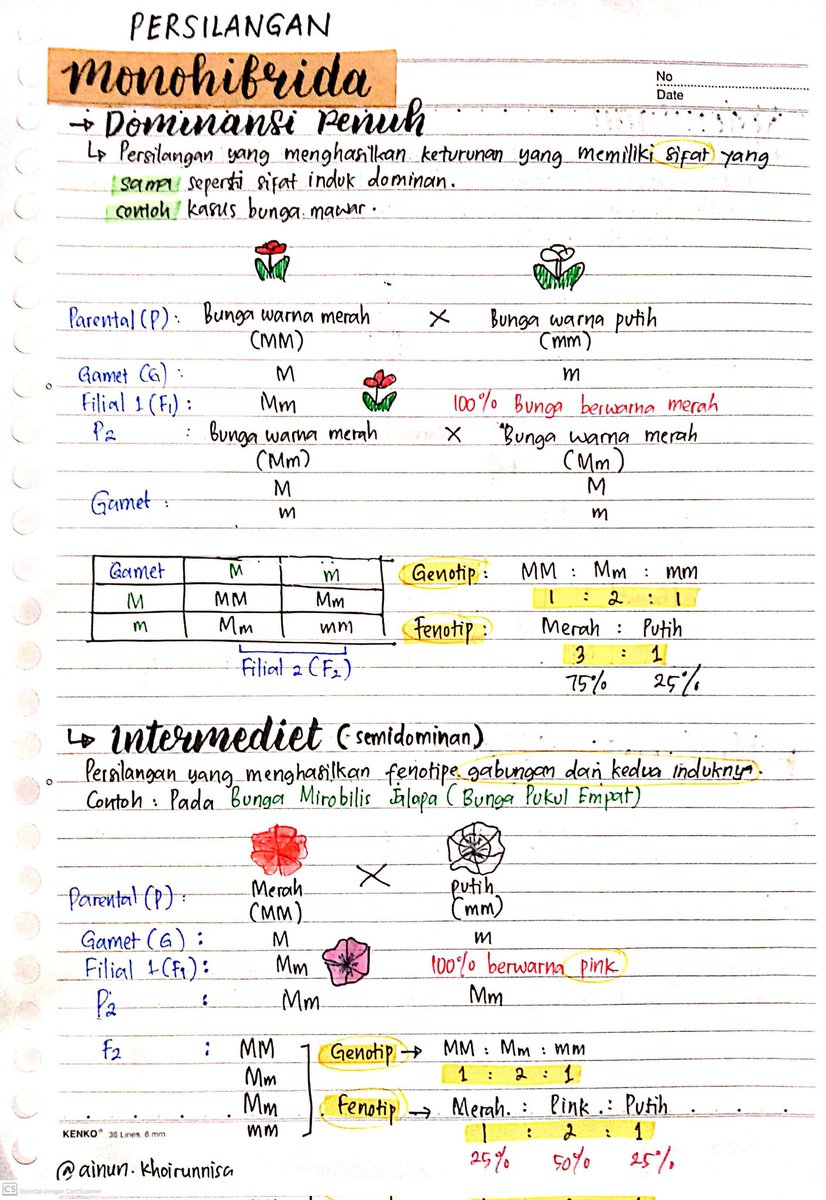 PERSILANGAN
monohibrida
No
Date
→ Dominansi Penuh
↳ Persilangan yang menghasilkan keturunan yang memiliki sifat yang
sama seperti sifat induk dominan.
contoh kasus bunga mawar.
Parental (P) : Bunga warna merah × Bunga warna putih
(MM) (mm)
Gamet (G) : M m
Filial 1 (F₁) : Mm 100% Bunga berwarna merah
P₂ : Bunga warna merah × Bunga warna merah
(Mm) (Mm)
Gamet : M M
m m
Gamet M m Genotip : MM : Mm : mm
M MM Mm 1 : 2 : 1
m Mm mm Fenotip : Merah : Putih
Filial 2 (F₂) 3 : 1
75% 25%
↳ Intermediet (semidominan)
Persilangan yang menghasilkan fenotipe gabungan dari kedua induknya.
Contoh : Pada Bunga Mirobilis Jalapa (Bunga Pukul Empat)
Parental (P) : Merah × putih
(MM) (mm)
Gamet (G) : M m
Filial 1 (F₁) : Mm 100% berwarna pink
P₂ : Mm Mm
F₂ : MM Genotip → MM : Mm : mm
Mm 1 : 2 : 1
Mm Fenotip → Merah : Pink : Putih
mm 1 : 2 : 1
25% 50% 25%
KENKO® 36 Lines, 6 mm
@ainun.khoirunnisa
CS Dipindai dengan CamScanner